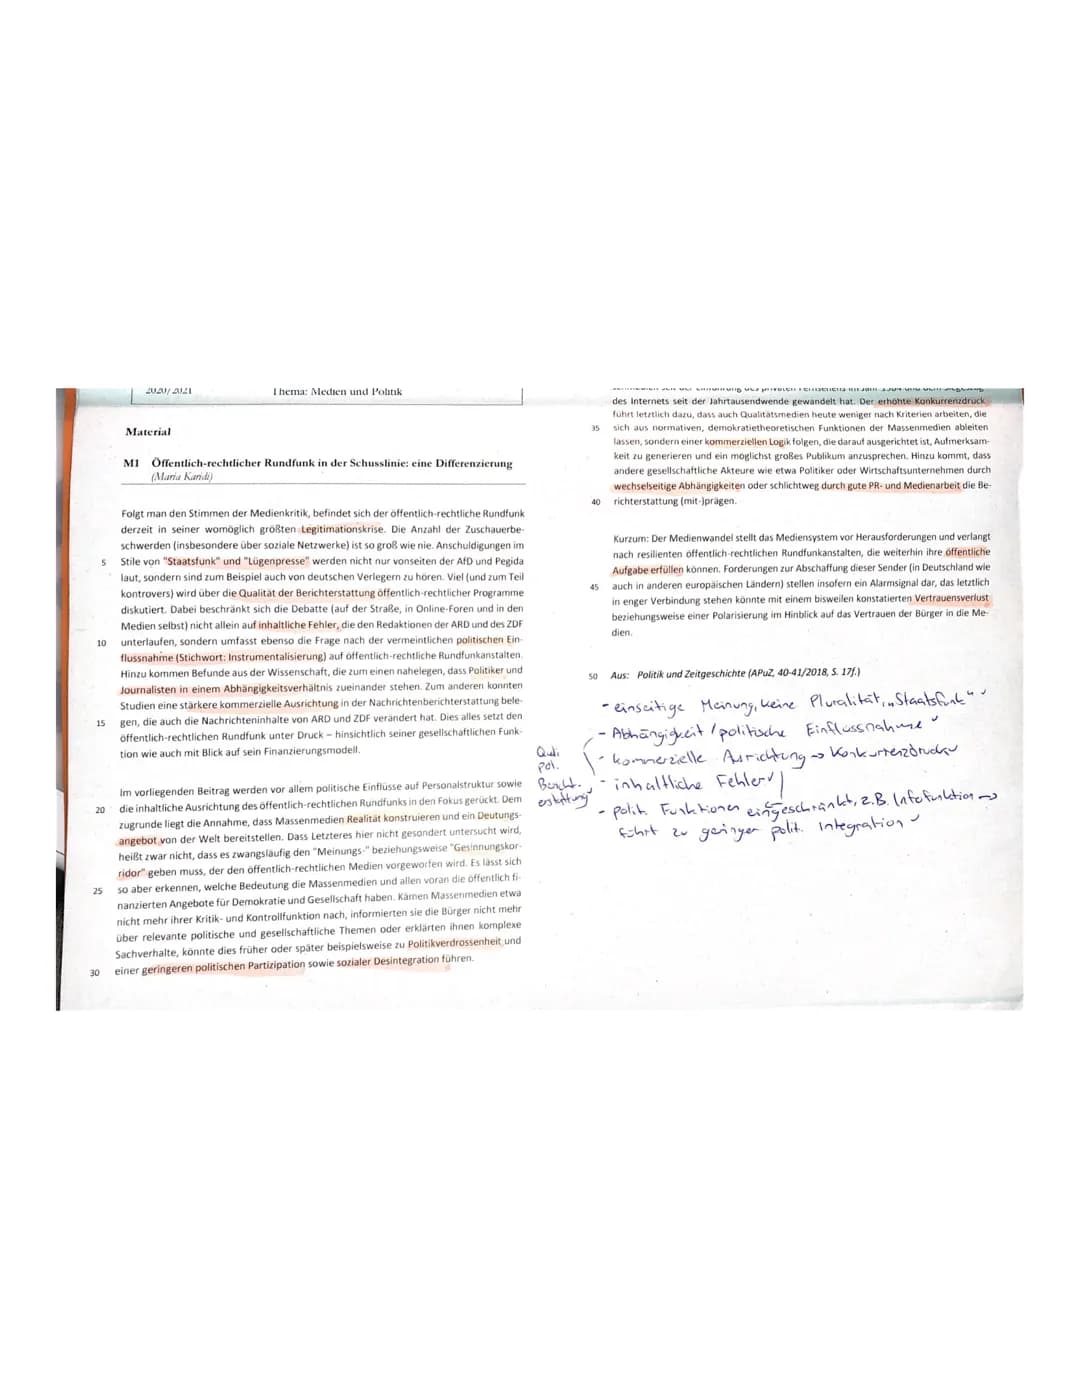 2020/2021 Thema: Medien und Politik
Material
M1 Öffentlich-rechtlicher Rundfunk in der Schusslinie: eine Differenzierung
(Maria Karidi)
Folgt man den Stimmen der Medienkritik, befindet sich der öffentlich-rechtliche Rundfunk
derzeit in seiner womöglich größten Legitimationskrise. Die Anzahl der Zuschauerbe-
schwerden (insbesondere über soziale Netzwerke) ist so groß wie nie. Anschuldigungen im
5 Stile von "Staatsfunk" und "Lügenpresse" werden nicht nur vonseiten der AfD und Pegida
laut, sondern sind zum Beispiel auch von deutschen Verlegern zu hören. Viel (und zum Teil
kontrovers) wird über die Qualität der Berichterstattung öffentlich-rechtlicher Programme
diskutiert. Dabei beschränkt sich die Debatte (auf der Straße, in Online-Foren und in den
Medien selbst) nicht allein auf inhaltliche Fehler, die den Redaktionen der ARD und des ZDF
10 unterlaufen, sondern umfasst ebenso die Frage nach der vermeintlichen politischen Ein-
flussnahme (Stichwort: Instrumentalisierung) auf öffentlich-rechtliche Rundfunkanstalten.
Hinzu kommen Befunde aus der Wissenschaft, die zum einen nahelegen, dass Politiker und
Journalisten in einem Abhängigkeitsverhältnis zueinander stehen. Zum anderen konnten
Studien eine stärkere kommerzielle Ausrichtung in der Nachrichtenberichterstattung bele-
15 gen, die auch die Nachrichteninhalte von ARD und ZDF verändert hat. Dies alles setzt den
öffentlich-rechtlichen Rundfunk unter Druck – hinsichtlich seiner gesellschaftlichen Funk-
tion wie auch mit Blick auf sein Finanzierungsmodell.
Im vorliegenden Beitrag werden vor allem politische Einflüsse auf Personalstruktur sowie
20 die inhaltliche Ausrichtung des öffentlich-rechtlichen Rundfunks in den Fokus gerückt. Dem
zugrunde liegt die Annahme, dass Massenmedien Realität konstruieren und ein Deutungs-
angebot von der Welt bereitstellen. Dass Letzteres hier nicht gesondert untersucht wird,
heißt zwar nicht, dass es zwangsläufig den "Meinungs-" beziehungsweise "Gesinnungskor-
ridor" geben muss, der den öffentlich-rechtlichen Medien vorgeworfen wird. Es lässt sich
25 so aber erkennen, welche Bedeutung die Massenmedien und allen voran die öffentlich fi-
nanzierten Angebote für Demokratie und Gesellschaft haben. Kämen Massenmedien etwa
nicht mehr ihrer Kritik- und Kontrollfunktion nach, informierten sie die Bürger nicht mehr
über relevante politische und gesellschaftliche Themen oder erklärten ihnen komplexe
Sachverhalte, könnte dies früher oder später beispielsweise zu Politikverdrossenheit und
30 einer geringeren politischen Partizipation sowie sozialer Desintegration führen.
des Internets seit der Jahrtausendwende gewandelt hat. Der erhöhte Konkurrenzdruck
führt letztlich dazu, dass auch Qualitätsmedien heute weniger nach Kriterien arbeiten, die
35 sich aus normativen, demokratietheoretischen Funktionen der Massenmedien ableiten
lassen, sondern einer kommerziellen Logik folgen, die darauf ausgerichtet ist, Aufmerksam-
keit zu generieren und ein möglichst großes Publikum anzusprechen. Hinzu kommt, dass
andere gesellschaftliche Akteure wie etwa Politiker oder Wirtschaftsunternehmen durch
wechselseitige Abhängigkeiten oder schlichtweg durch gute PR- und Medienarbeit die Be-
40 richterstattung (mit-)prägen.
Kurzum: Der Medienwandel stellt das Mediensystem vor Herausforderungen und verlangt
nach resilienten öffentlich-rechtlichen Rundfunkanstalten, die weiterhin ihre öffentliche
Aufgabe erfüllen können. Forderungen zur Abschaffung dieser Sender (in Deutschland wie
45 auch in anderen europäischen Ländern) stellen insofern ein Alarmsignal dar, das letztlich
in enger Verbindung stehen könnte mit einem bisweilen konstatierten Vertrauensverlust
beziehungsweise einer Polarisierung im Hinblick auf das Vertrauen der Bürger in die Me-
dien.
50 Aus: Politik und Zeitgeschichte (APuZ, 40-41/2018, S. 17f.)
- einseitige Meinung, keine Pluralität, "Staatsfunk"
- Abhängigkeit / politische Einflussnahme
- kommerzielle Ausrichtung → Konkurrenzdruck
- inhaltliche Fehler
- polit. Funktionen eingeschränkt, z.B. Infofunktion →
führt zu geringer polit. Integration
pol.